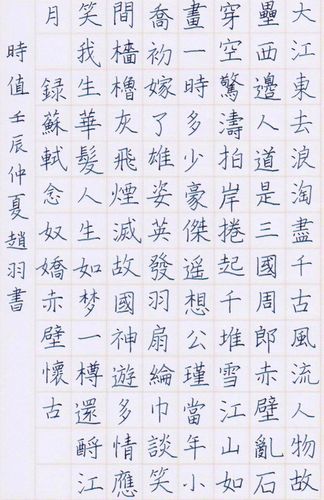 大江東去浪淘盡千古風流人物故
壘西邊人道是三國周郎赤壁亂石
穿空驚濤拍岸捲起千堆雪江山如
畫一時多少豪傑遥想公瑾當年小
喬初嫁了雄姿英發羽扇綸巾談笑
間檣櫓灰飛煙滅故國神遊多情應
笑我生華髮人生如梦一樽還酹江
月 録蘇軾念奴嬌赤壁懷古
時值壬辰仲夏趙羽書